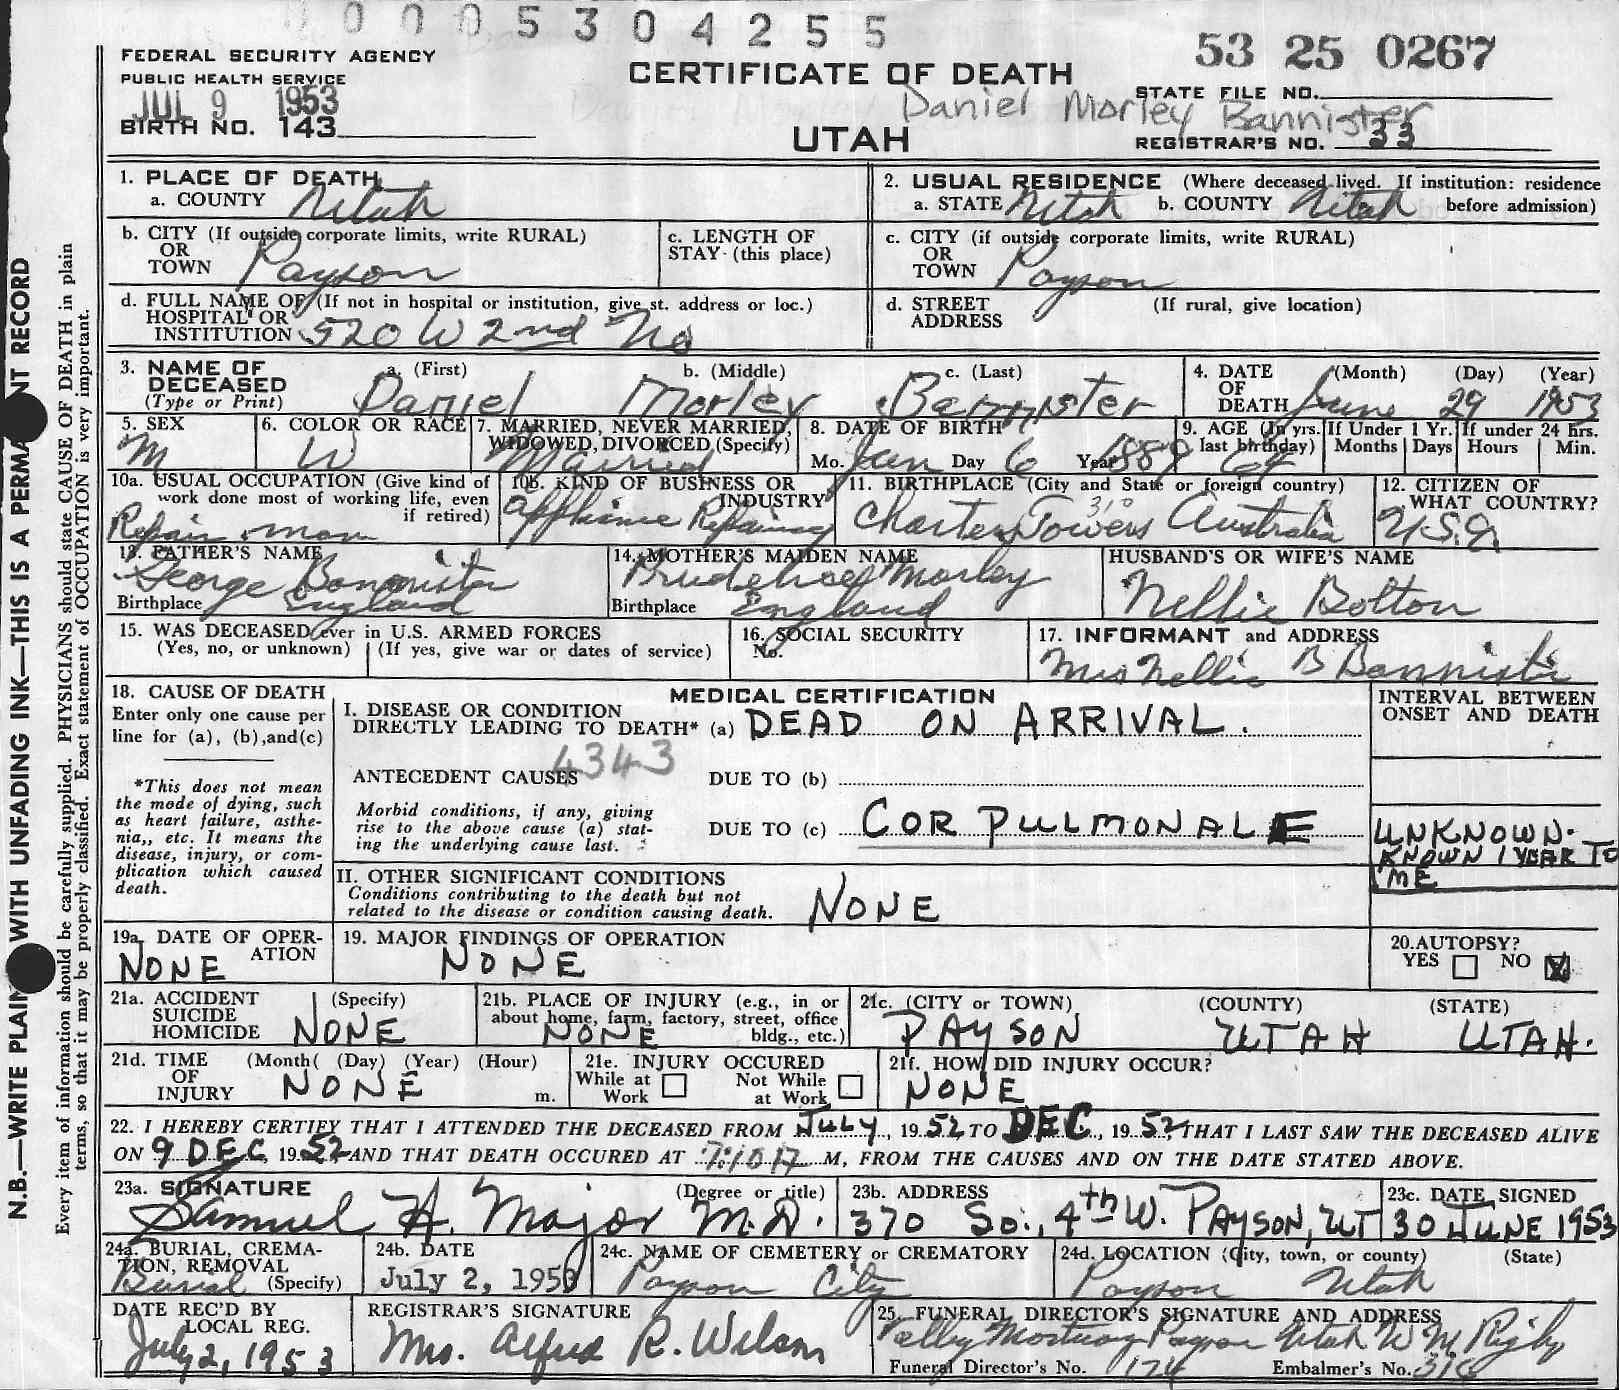 0 0 0 5 3 0 4 2 5 5
53 25 0267
FEDERAL SECURITY AGENCY
PUBLIC HEALTH SERVICE
JUL 9 1953
BIRTH NO. 143
CERTIFICATE OF DEATH
UTAH
STATE FILE NO.
Daniel Morley Bannister
REGISTRAR'S NO. 33
1. PLACE OF DEATH
a. COUNTY Utah
2. USUAL RESIDENCE (Where deceased lived. If institution: residence before admission)
a. STATE Utah b. COUNTY Utah
b. CITY (If outside corporate limits, write RURAL)
OR
TOWN Payson
c. LENGTH OF
STAY (this place)
c. CITY (if outside corporate limits, write RURAL)
OR
TOWN Payson
d. FULL NAME OF (If not in hospital or institution, give st. address or loc.)
HOSPITAL OR
INSTITUTION 520 W 2nd No
d. STREET (If rural, give location)
ADDRESS
3. NAME OF
DECEASED
(Type or Print)
a. (First) b. (Middle) c. (Last)
Daniel Morley Bannister
4. DATE (Month) (Day) (Year)
OF
DEATH June 29 1953
5. SEX
M
6. COLOR OR RACE
W
7. MARRIED, NEVER MARRIED,
WIDOWED, DIVORCED (Specify)
Married
8. DATE OF BIRTH
Mo. Jan Day 6 Year 1889
9. AGE (In yrs. last birthday)
64
If Under 1 Yr.
Months Days
If under 24 hrs.
Hours Min.
10a. USUAL OCCUPATION (Give kind of
work done most of working life, even
if retired)
Repair man
10b. KIND OF BUSINESS OR
INDUSTRY
Repairing
11. BIRTHPLACE (City and State or foreign country)
310
Charters Towers Australia
12. CITIZEN OF
WHAT COUNTRY?
U.S.A.
13. FATHER'S NAME
George Bannister
Birthplace England
14. MOTHER'S MAIDEN NAME
Morley
Birthplace England
HUSBAND'S OR WIFE'S NAME
Nellie Bolton
15. WAS DECEASED ever in U.S. ARMED FORCES
(Yes, no, or unknown) (If yes, give war or dates of service)
16. SOCIAL SECURITY
No.
17. INFORMANT and ADDRESS
Mrs Nellie B Bannister
18. CAUSE OF DEATH
Enter only one cause per
line for (a), (b), and (c)
*This does not mean
the mode of dying, such
as heart failure, asthe-
nia,, etc. It means the
disease, injury, or com-
plication which caused
death.
MEDICAL CERTIFICATION
I. DISEASE OR CONDITION
DIRECTLY LEADING TO DEATH* (a) DEAD ON ARRIVAL.
4343
ANTECEDENT CAUSES DUE TO (b)
Morbid conditions, if any, giving
rise to the above cause (a) stat-
ing the underlying cause last.
DUE TO (c) COR PULMONALE
INTERVAL BETWEEN
ONSET AND DEATH
UNKNOWN.
KNOWN 1 YEAR TO
ME
II. OTHER SIGNIFICANT CONDITIONS
Conditions contributing to the death but not
related to the disease or condition causing death.
NONE
19a. DATE OF OPER-
ATION
NONE
19. MAJOR FINDINGS OF OPERATION
NONE
20. AUTOPSY?
YES NO X
21a. ACCIDENT (Specify)
SUICIDE
HOMICIDE NONE
21b. PLACE OF INJURY (e.g., in or
about home, farm, factory, street, office
bldg., etc.)
NONE
21c. (CITY or TOWN) (COUNTY) (STATE)
PAYSON UTAH UTAH.
21d. TIME (Month( (Day) (Year) (Hour)
OF
INJURY NONE m.
21e. INJURY OCCURED
While at Work
Not While at Work
21f. HOW DID INJURY OCCUR?
NONE
22. I HEREBY CERTIFY THAT I ATTENDED THE DECEASED FROM JULY, 1952 TO DEC, 1952, THAT I LAST SAW THE DECEASED ALIVE
ON 9 DEC, 1952 AND THAT DEATH OCCURED AT 7:10 M, FROM THE CAUSES AND ON THE DATE STATED ABOVE.
23a. SIGNATURE (Degree or title)
Samuel H. Major M.D.
23b. ADDRESS
370 So., 4th W. PAYSON, UT
23c. DATE SIGNED
30 JUNE 1953
24a. BURIAL, CREMA-
TION, REMOVAL
(Specify)
Burial
24b. DATE
July 2, 1953
24c. NAME OF CEMETERY or CREMATORY
Payson City
24d. LOCATION (City, town, or county) (State)
Payson Utah
DATE REC'D BY
LOCAL REG.
July 2, 1953
REGISTRAR'S SIGNATURE
Mrs. Alfred R. Wilson
25. FUNERAL DIRECTOR'S SIGNATURE AND ADDRESS
Valley Mortuary Payson Utah W M Rigby
Funeral Director's No. 174 Embalmer's No. 316
N.B.—WRITE PLAIN WITH UNFADING INK—THIS IS A PERMA NT RECORD
Every item of information should be carefully supplied. PHYSICIANS should state CAUSE OF DEATH in plain
terms, so that it may be properly classified. Exact statement of OCCUPATION is very important.